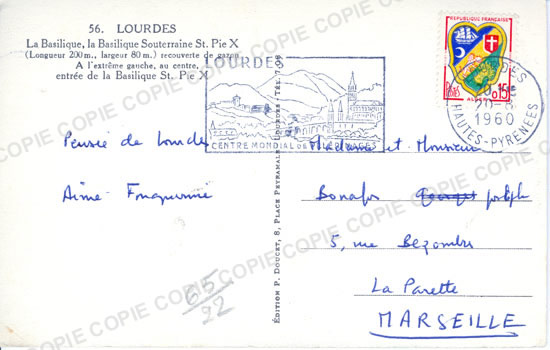 56. LOURDES
La Basilique, la Basilique Souterraine St. Pie X
(Longueur 200 m., largeur 80 m.) recouverte de gazon
A l'extrême gauche, au centre,
entrée de la Basilique St. Pie X
LOURDES
CENTRE MONDIAL DE PÈLERINAGES
REPUBLIQUE FRANÇAISE
POSTES
0,15
ALGER
LOURDES
20-8
1960
HAUTES-PYRÉNÉES
Pensée de Lourdes
Aimé
65/22
EDITION P. DOUCET, 8, PLACE PEYRAMALE, LOURDES - TÉL. 7.99
Madame et Monsieur
Bonafos Georges joseph
5, rue Bezombes
La Parette
MARSEILLE
COPIE COPIE COPIE COPIE COPIE